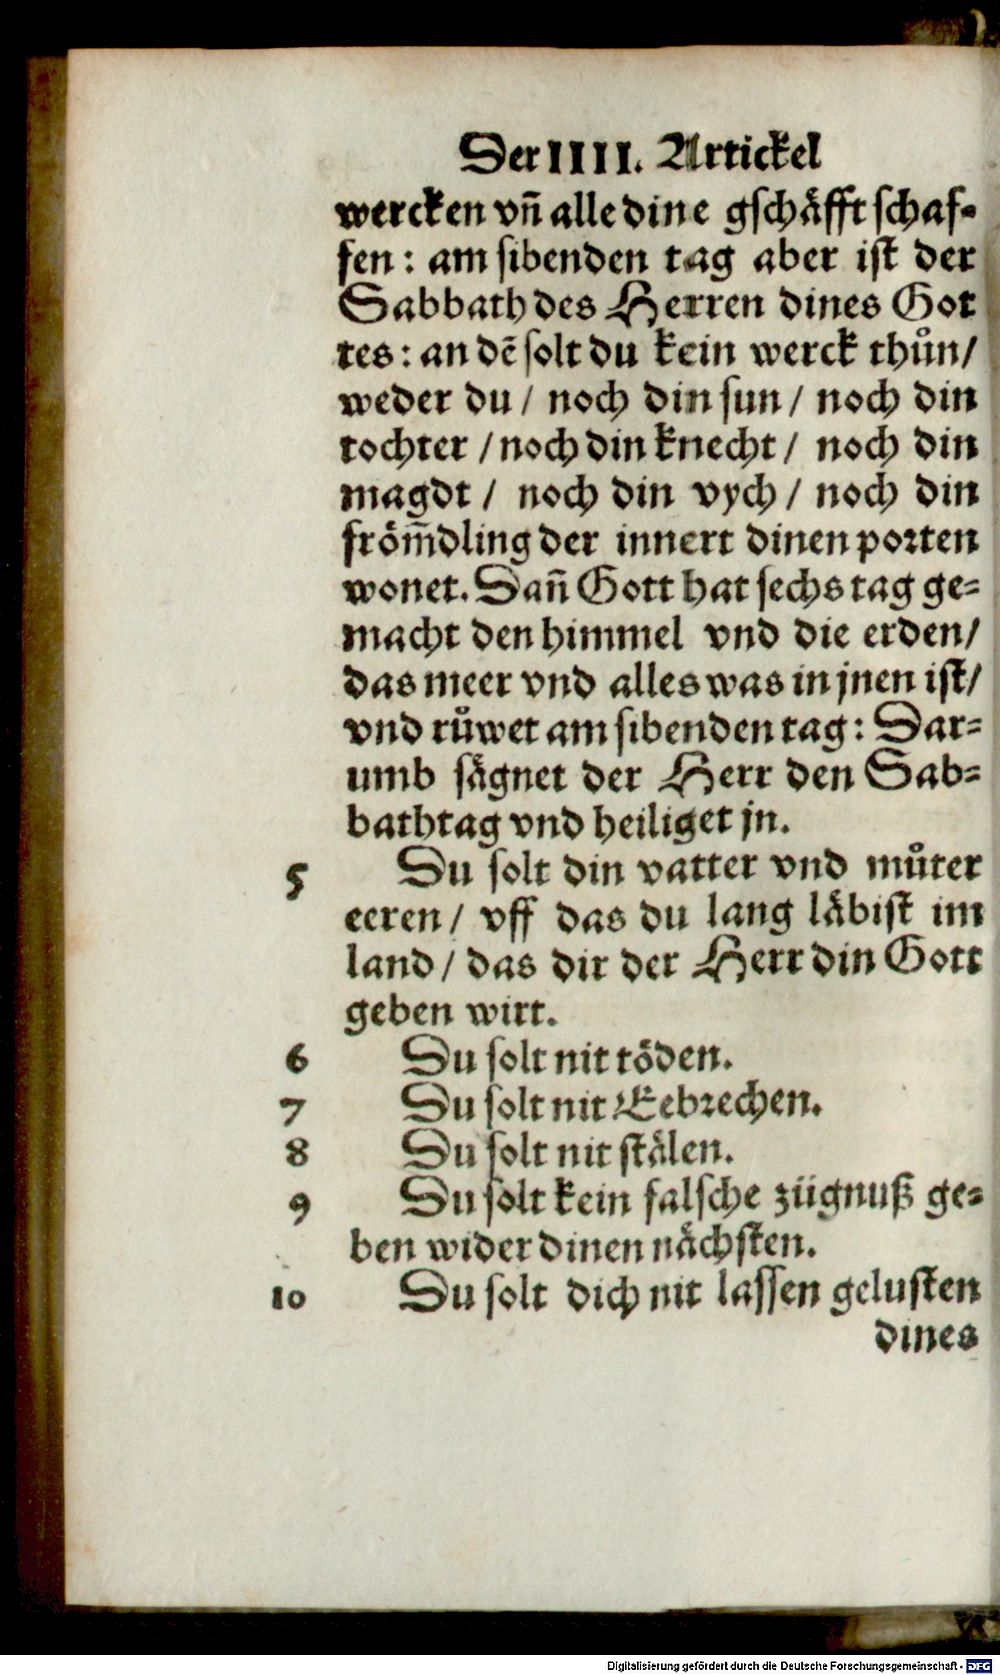 Der IIII. Artickel
wercken vñ alle dine gschäfft schaf-
fen: am sibenden tag aber ist der
Sabbath des Herren dines Got
tes: an dẽ solt du kein werck thůn/
weder du / noch din sun / noch din
tochter / noch din knecht / noch din
magdt / noch din vych / noch din
fröm̃dling der innert dinen porten
wonet. Dañ Gott hat sechs tag ge-
macht den himmel vnd die erden/
das meer vnd alles was in jnen ist/
vnd růwet am sibenden tag: Dar-
umb sägnet der Herr den Sab-
bathtag vnd heiliget jn.
5 Du solt din vatter vnd můter
eeren / vff das du lang läbist im
land / das dir der Herr din Gott
geben wirt.
6 Du solt nit töden.
7 Du solt nit Eebrechen.
8 Du solt nit stälen.
9 Du solt kein falsche zügnuß ge-
ben wider dinen nächsten.
10 Du solt dich nit lassen gelusten
dines
Digitalisierung gefördert durch die Deutsche Forschungsgemeinschaft - DFG